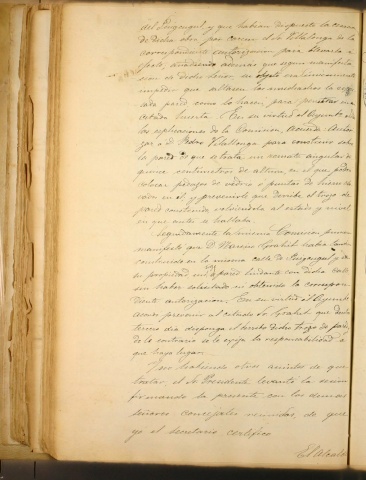 del Puigarugul, y que habian dispuesto la
de dicha obra por carecer el Sr. Vilallonga de la
correspondiente autorizacion para llevarla á
efecto, añadiendo además que segun manifesta
cion de dicho Señor, su objeto era unicamente
impedir que saltasen los muchachos la
cada pared como lo hacen para penetrar en
citada huerta. En su virtud el Ayunto. oidas
las esplicaciones de la Comision, Acuerda Autori
zar á D. Pedro Vilallonga para construir sobre
la pared de que se trata un remate angular de
quince centimetros de altura, en el que podrá
colocar pedazos de vidrio ó puntas de hierro
en él y previniendole que derribe el trozo de
pared construido, volviendola al estado y nivel
en que antes se hallaba.
Seguidamente la misma Comision
manifestó que D. Narciso habia tambien
construido en la misma calle de Puigarugul y de
su propiedad una pared lindante con dicha calle
sin haber solicitado ni obtenido la correspon
diente autorizacion. En su virtud el Ayunto.
acordó prevenir al citado Sr. que dentro
tercero dia disponga el derribo dicho trozo de pared,
de lo contrario se le exija la responsabilidad á
que haya lugar.
Y no habiendo otros asuntos de que
tratar, el Sr. Presidente levantó la sesion
firmando la presente con los demas
señores concejales reunidos, de que
yo el secretario certifico.
El Alcalde